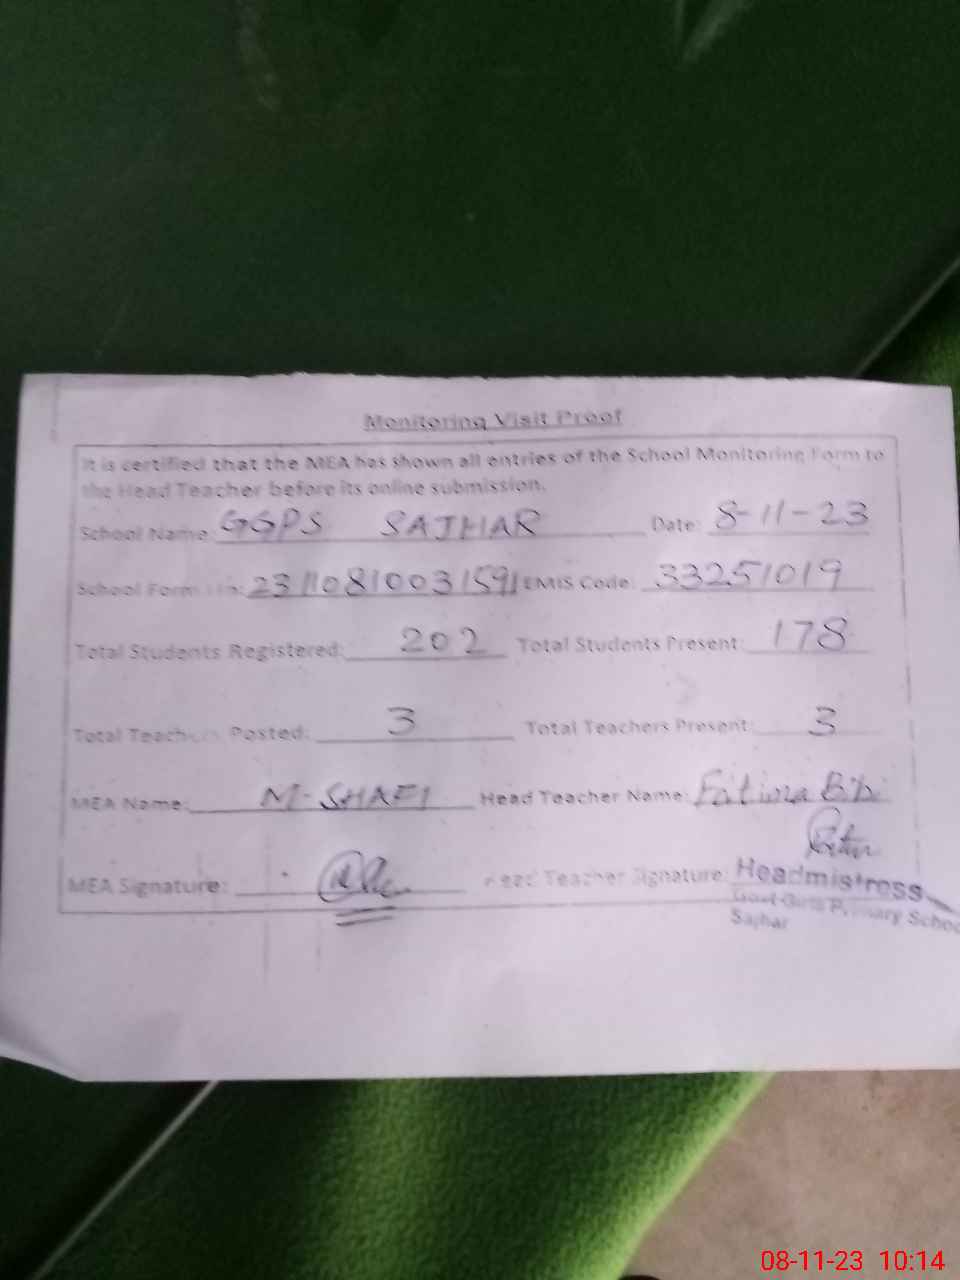 Monitoring Visit Proof
It is certified that the MEA has shown all entries of the School Monitoring Form to
the Head Teacher before its online submission.
School Name: GGPS SAJHAR Date: 8-11-23
School Form EMIS Code: 33251019
Total Students Registered: 202 Total Students Present: 178
Total Teachers Posted: 3 Total Teachers Present: 3
MEA Name: M-SHAFI Head Teacher Name: Fatima Bibi
MEA Signature: Head Teacher Signature:
Headmistress
Govt Girls Primary School
Sajhar
08-11-23 10:14